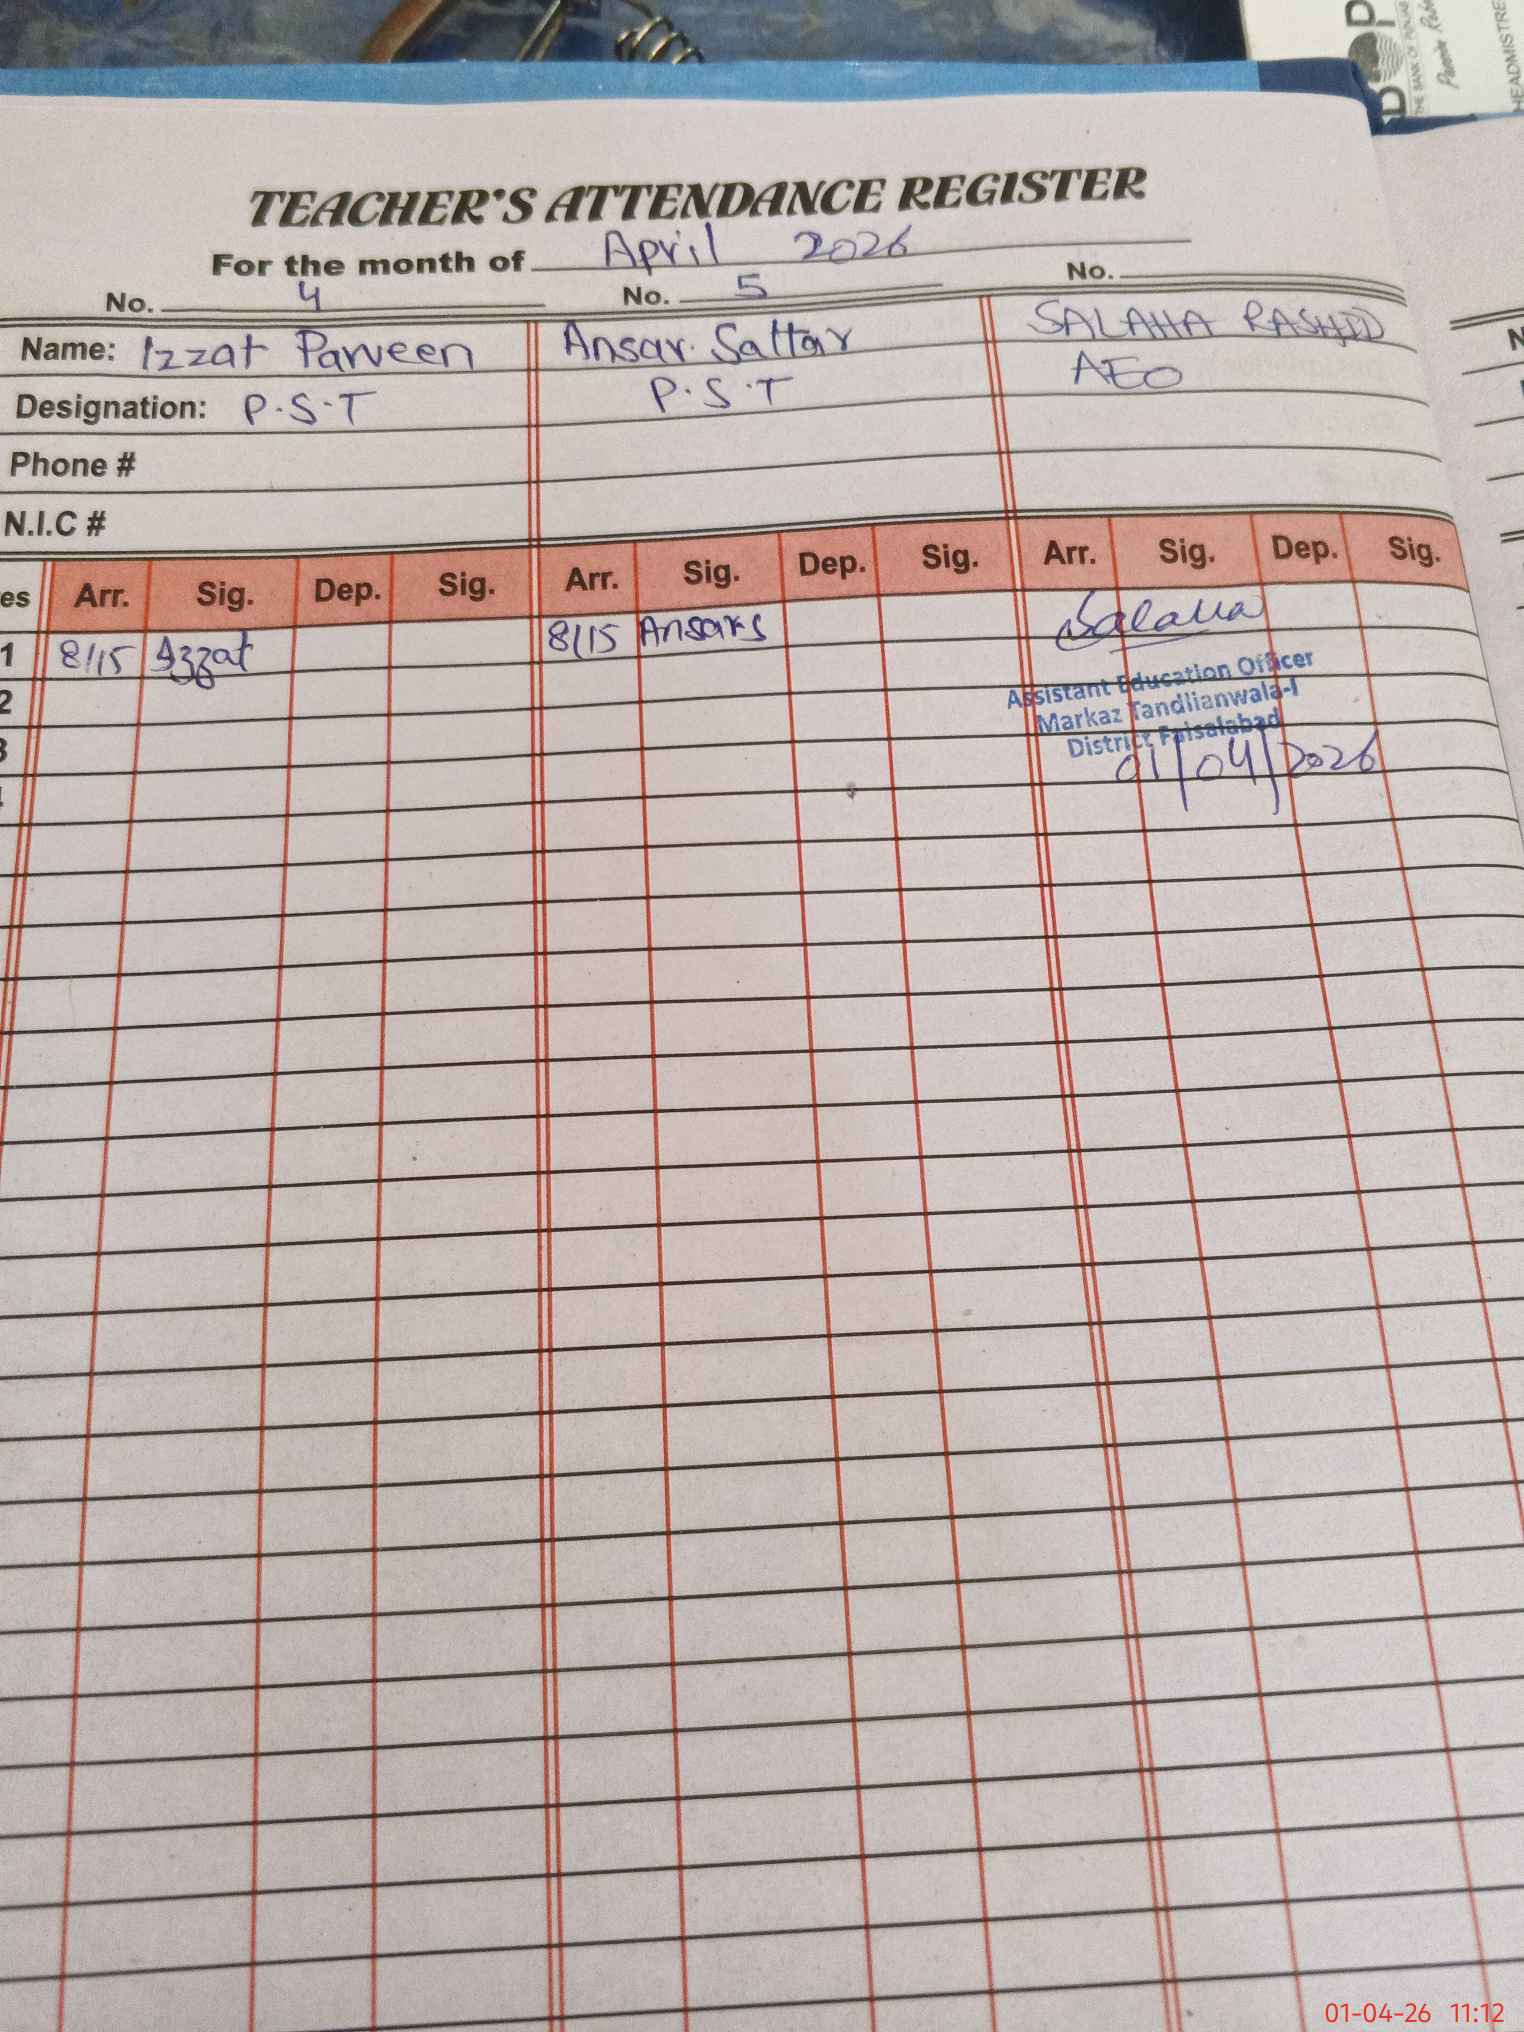 BOP
THE BANK OF PUNJAB
HEADMISTRE
TEACHER'S ATTENDANCE REGISTER
For the month of April 2026
No. 4 No. 5 No.
Name: Izzat Parveen Ansar Sattar SALAHA RASHID
Designation: P.S.T P.S.T AEO
Phone #
N.I.C #
es Arr. Sig. Dep. Sig. Arr. Sig. Dep. Sig. Arr. Sig. Dep. Sig.
1 8/15 Izzat 8/15 Ansars Salaha
2
3
Assistant Education Officer
Markaz Tandlianwala-I
District Faisalabad
01/04/2026
01-04-26 11:12